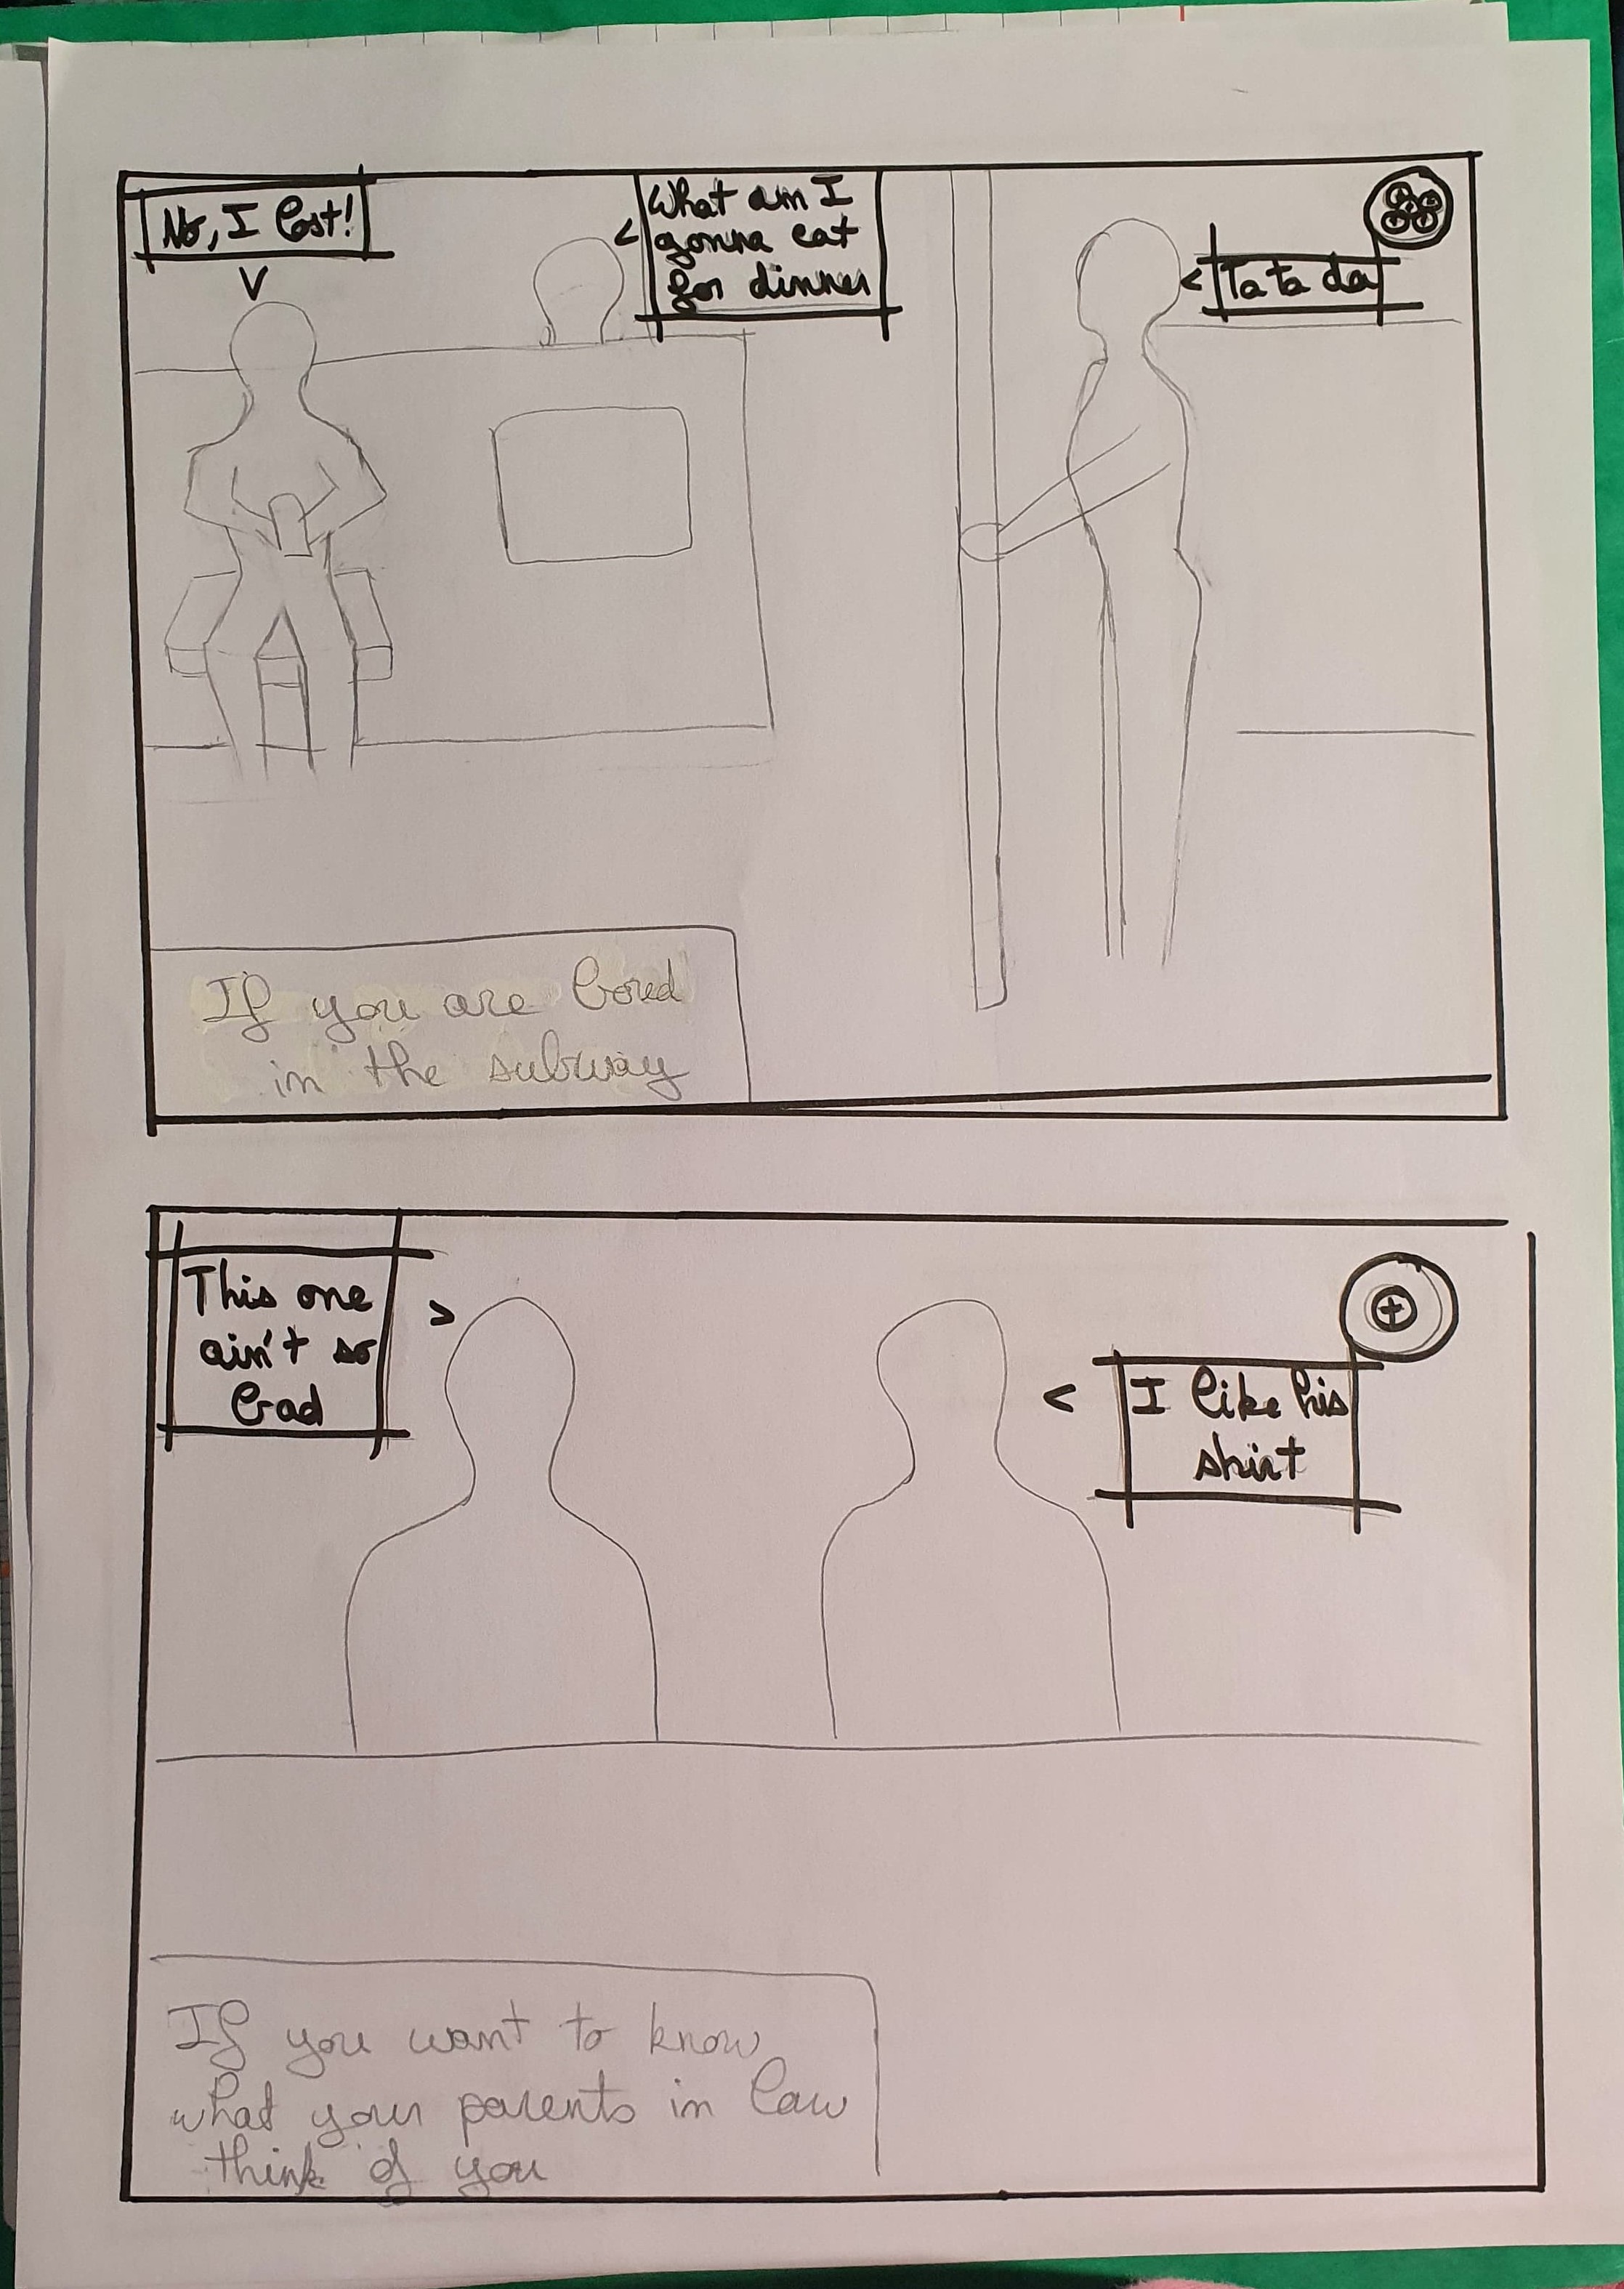 No, I lost!
What am I
gonna eat
for dinner
Ta ta da
If you are bored
in the subway
This one
ain't so
bad
I like his
shirt
If you want to know
what your parents in law
think of you